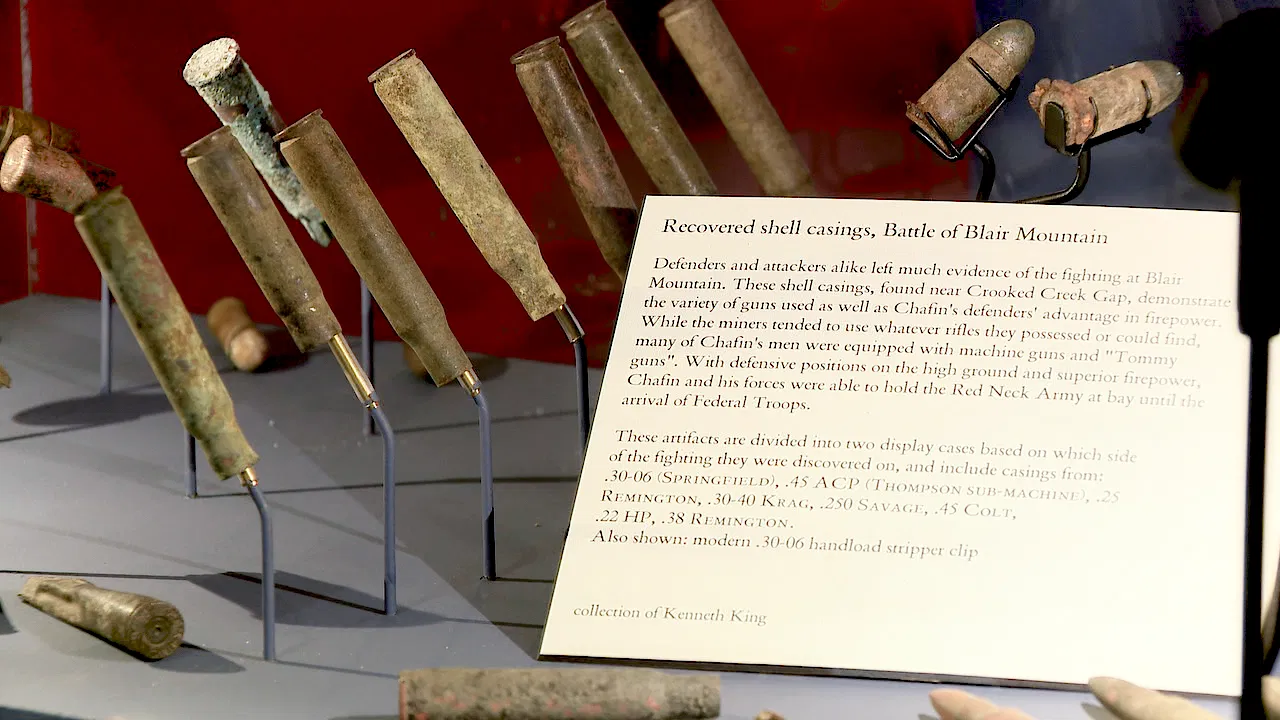 Recovered shell casings, Battle of Blair Mountain
Defenders and attackers alike left much evidence of the fighting at Blair
Mountain. These shell casings, found near Crooked Creek Gap, demonstrate
the variety of guns used as well as Chafin's defenders' advantage in firepower.
While the miners tended to use whatever rifles they possessed or could find,
many of Chafin's men were equipped with machine guns and "Tommy
guns". With defensive positions on the high ground and superior firepower,
Chafin and his forces were able to hold the Red Neck Army at bay until the
arrival of Federal Troops.
These artifacts are divided into two display cases based on which side
of the fighting they were discovered on, and include casings from:
.30-06 (Springfield), .45 ACP (Thompson sub-machine), .25
Remington, .30-40 Krag, .250 Savage, .45 Colt,
.22 HP, .38 Remington.
Also shown: modern .30-06 handload stripper clip
collection of Kenneth King